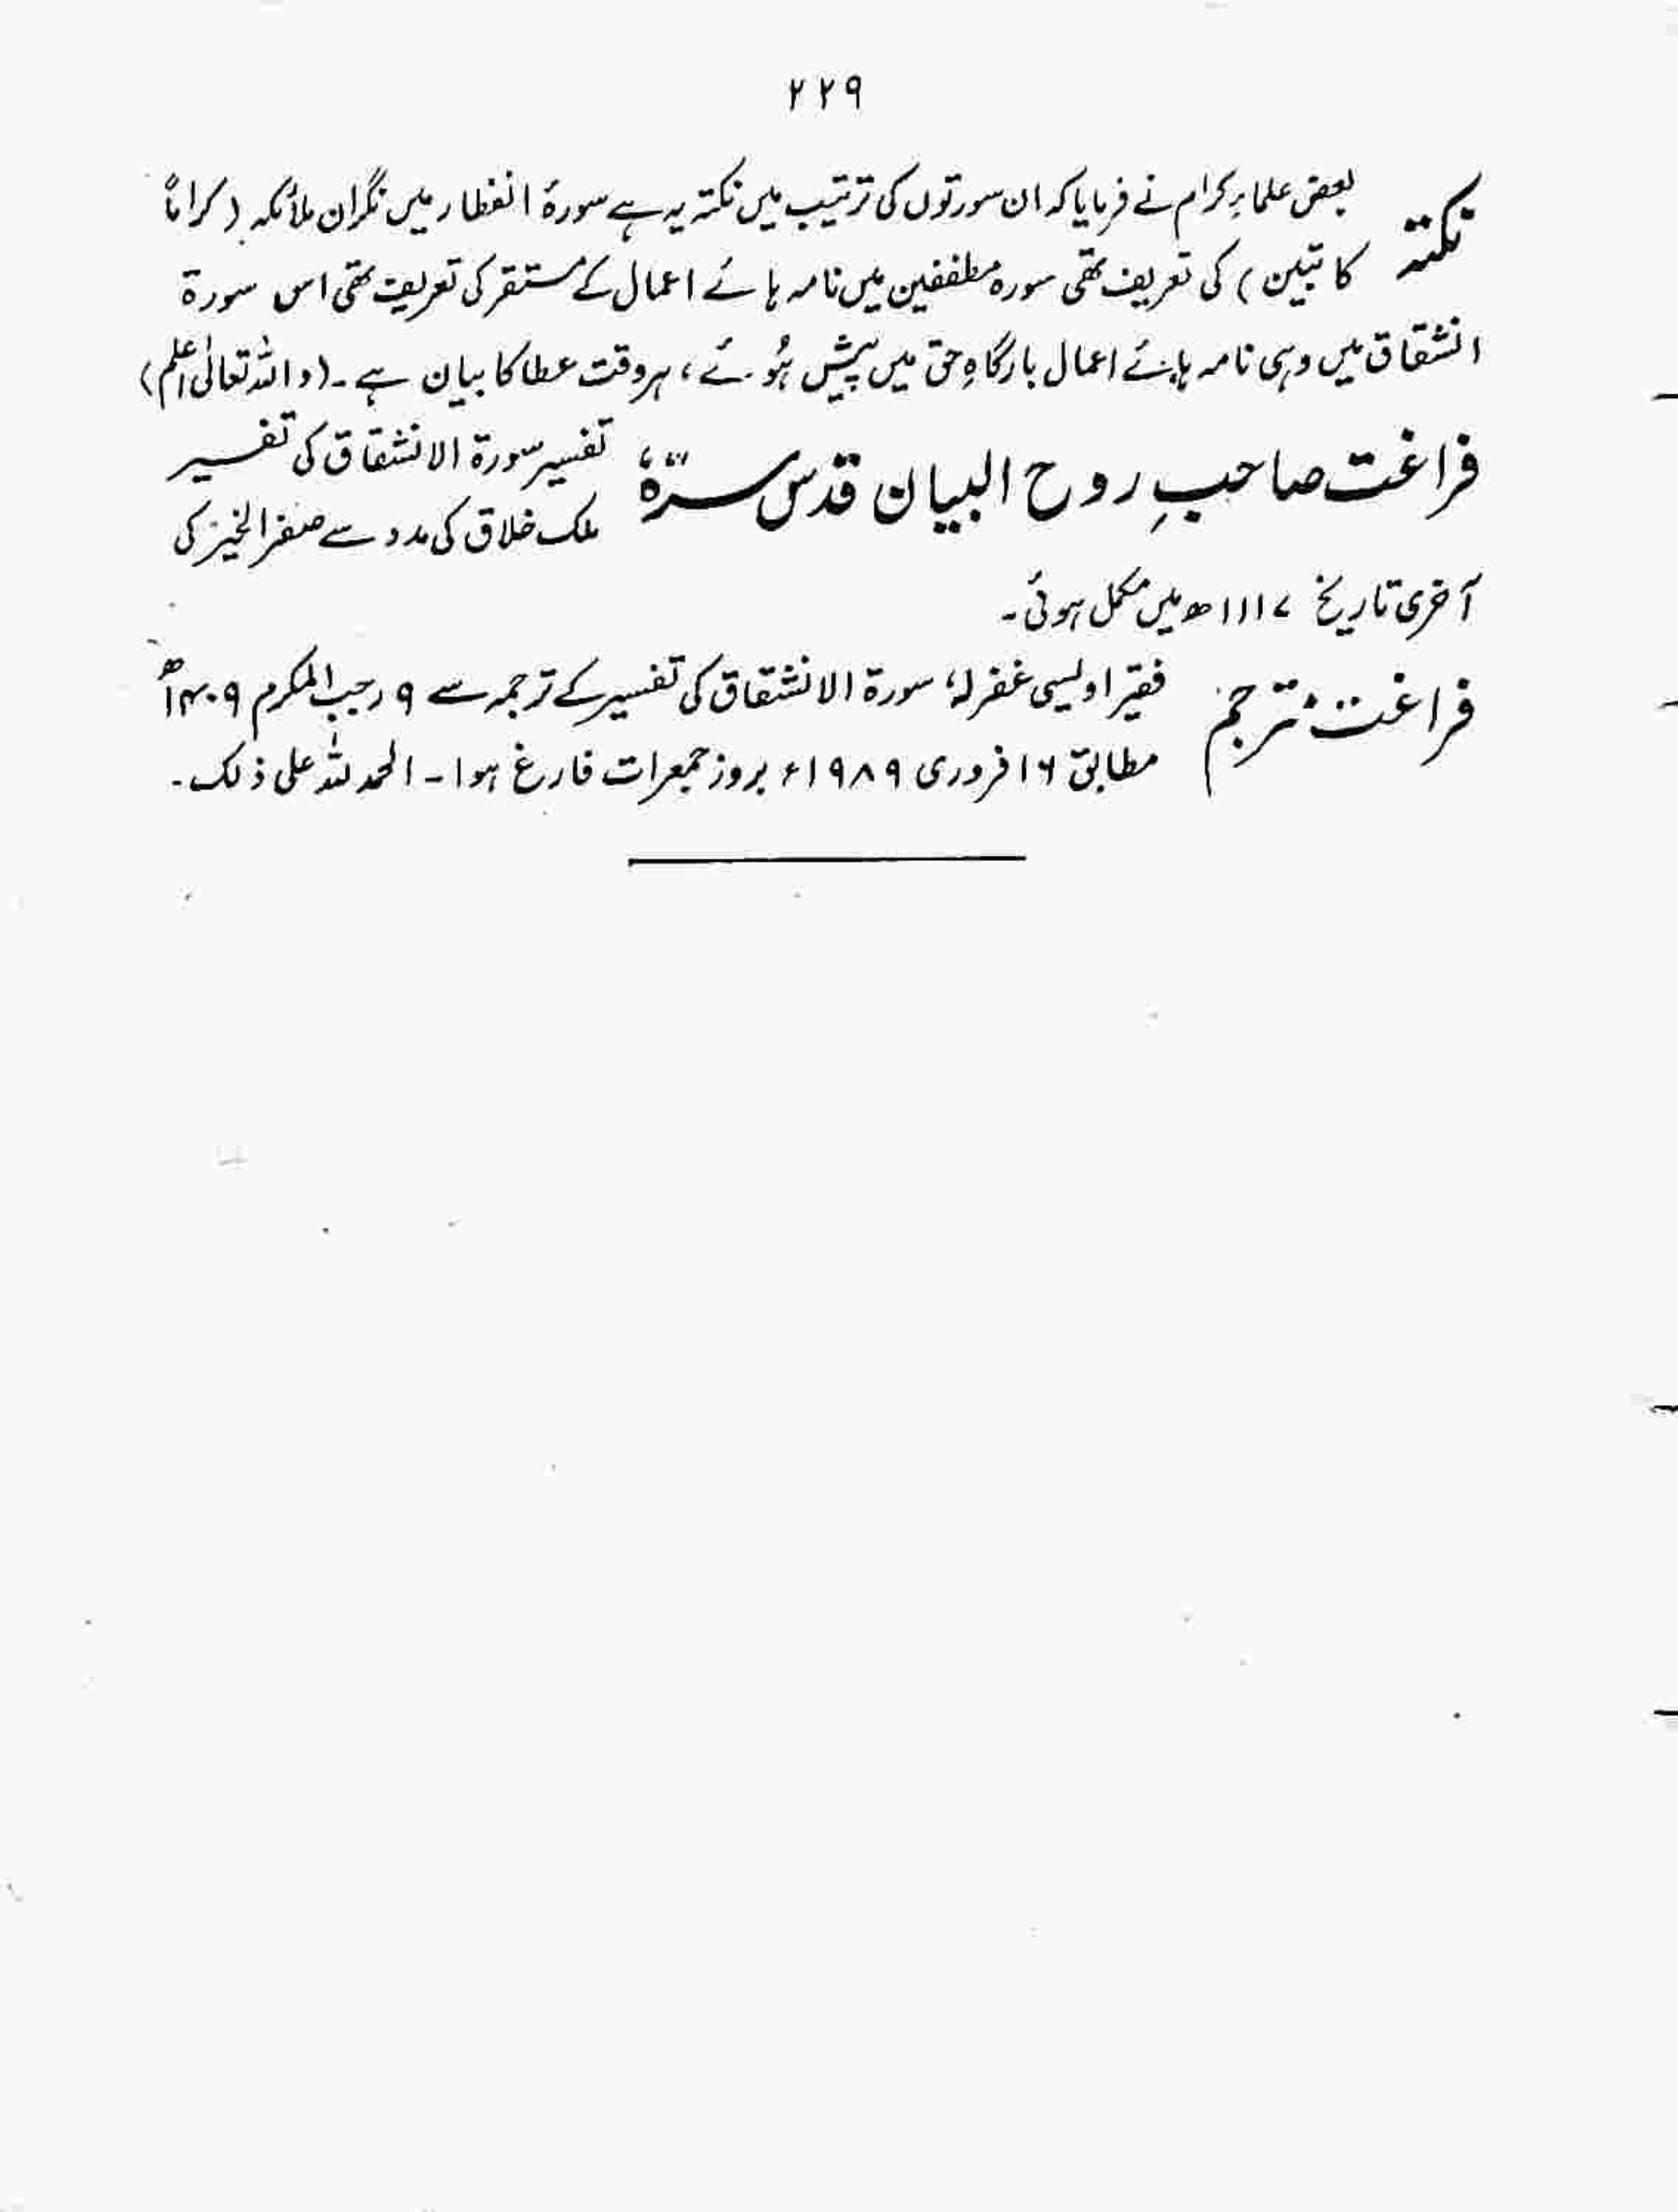 ۲۲۹
نکتہ بعض علماءِ کرام نے فرمایا کہ ان سورتوں کی ترتیب میں نکتہ یہ ہے سورۂ انفطار میں نگران ملائکہ (کراماً
کاتبین) کی تعریف تھی سورہ مطففین میں نامہ ہائے اعمال کے مستقر کی تعریف تھی اس سورۃ
انشقاق میں وہی نامہ ہائے اعمال بارگاہِ حق میں پیش ہُوئے، ہر وقت عطا کا بیان ہے۔ (واللہ تعالٰی اعلم)
فراغت صاحبِ روح البیان قدس سرّہٗ تفسیر سورۃ الانشقاق کی تفسیر
ملک خلاق کی مدد سے صفر الخیر کی
آخری تاریخ ۱۱۱۷ھ میں مکمل ہوئی۔
فراغت مترجم فقیر اویسی غفرلہٗ سورۃ الانشقاق کی تفسیر کے ترجمہ سے ۹ رجب المکرم ۱۴۰۹ھ
مطابق ۱۶ فروری ۱۹۸۹ء بروز جمعرات فارغ ہوا۔ الحمد للہ علی ذلک۔